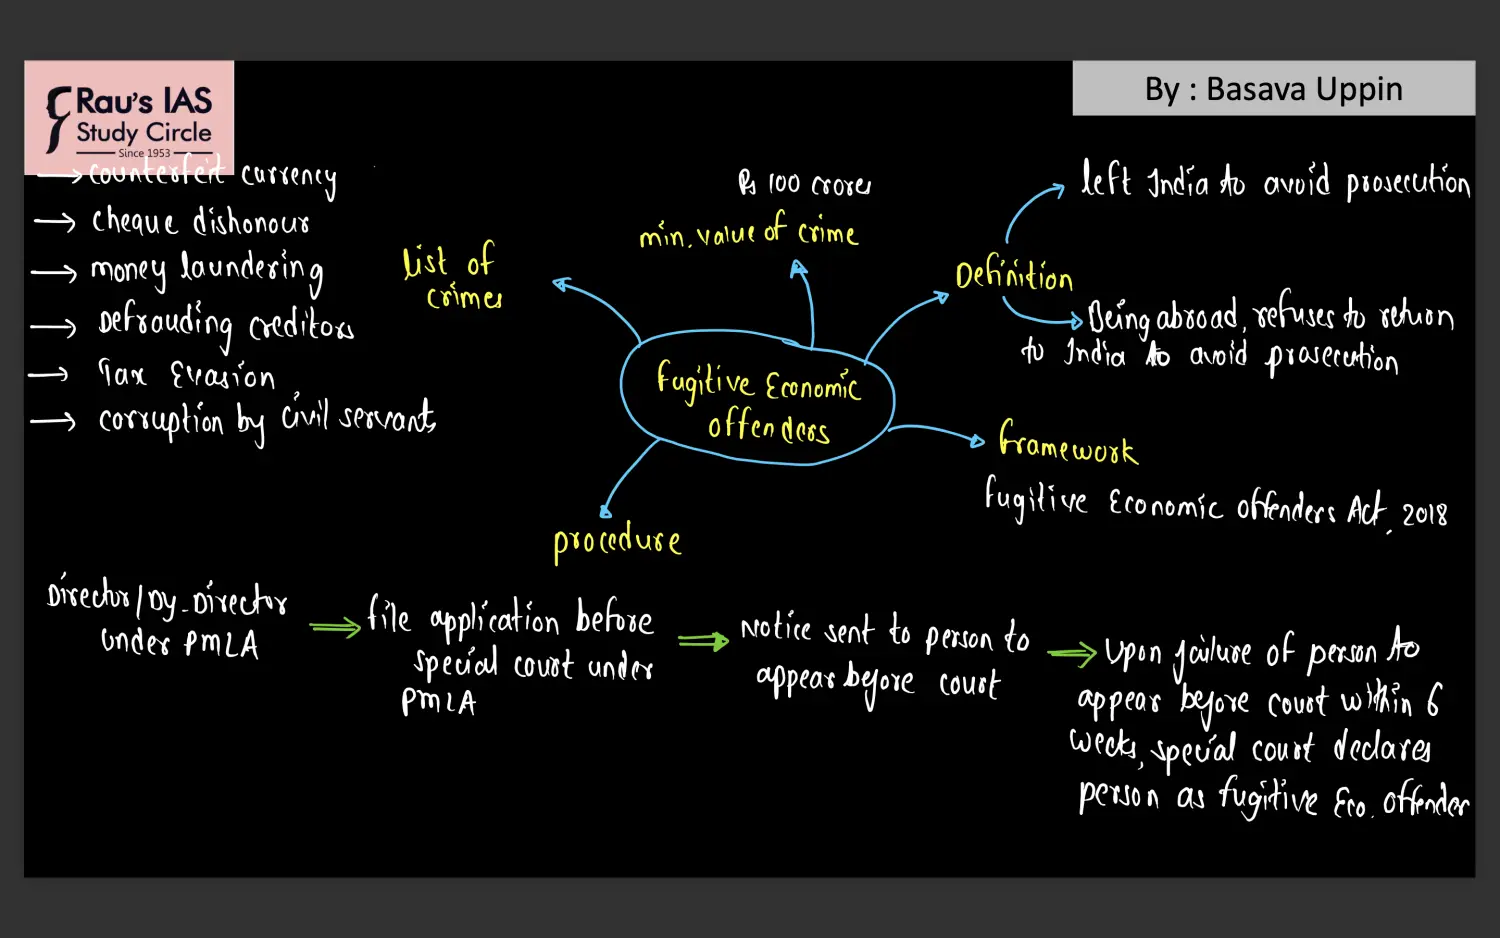 Rau's IAS
Study Circle
Since 1953
By : Basava Uppin
counterfeit currency
cheque dishonour
money laundering
Defrauding creditors
Tax Evasion
corruption by civil servants
list of
crimes
Rs 100 crores
min. value of crime
Definition
left India to avoid prosecution
Being abroad, refuses to return
to India to avoid prosecution
Fugitive Economic
offenders
framework
Fugitive Economic offenders Act, 2018
procedure
Director/Dy-Director
under PMLA
file application before
special court under
PMLA
Notice sent to person to
appear before court
Upon failure of person to
appear before court within 6
weeks, special court declares
person as fugitive Eco. offender